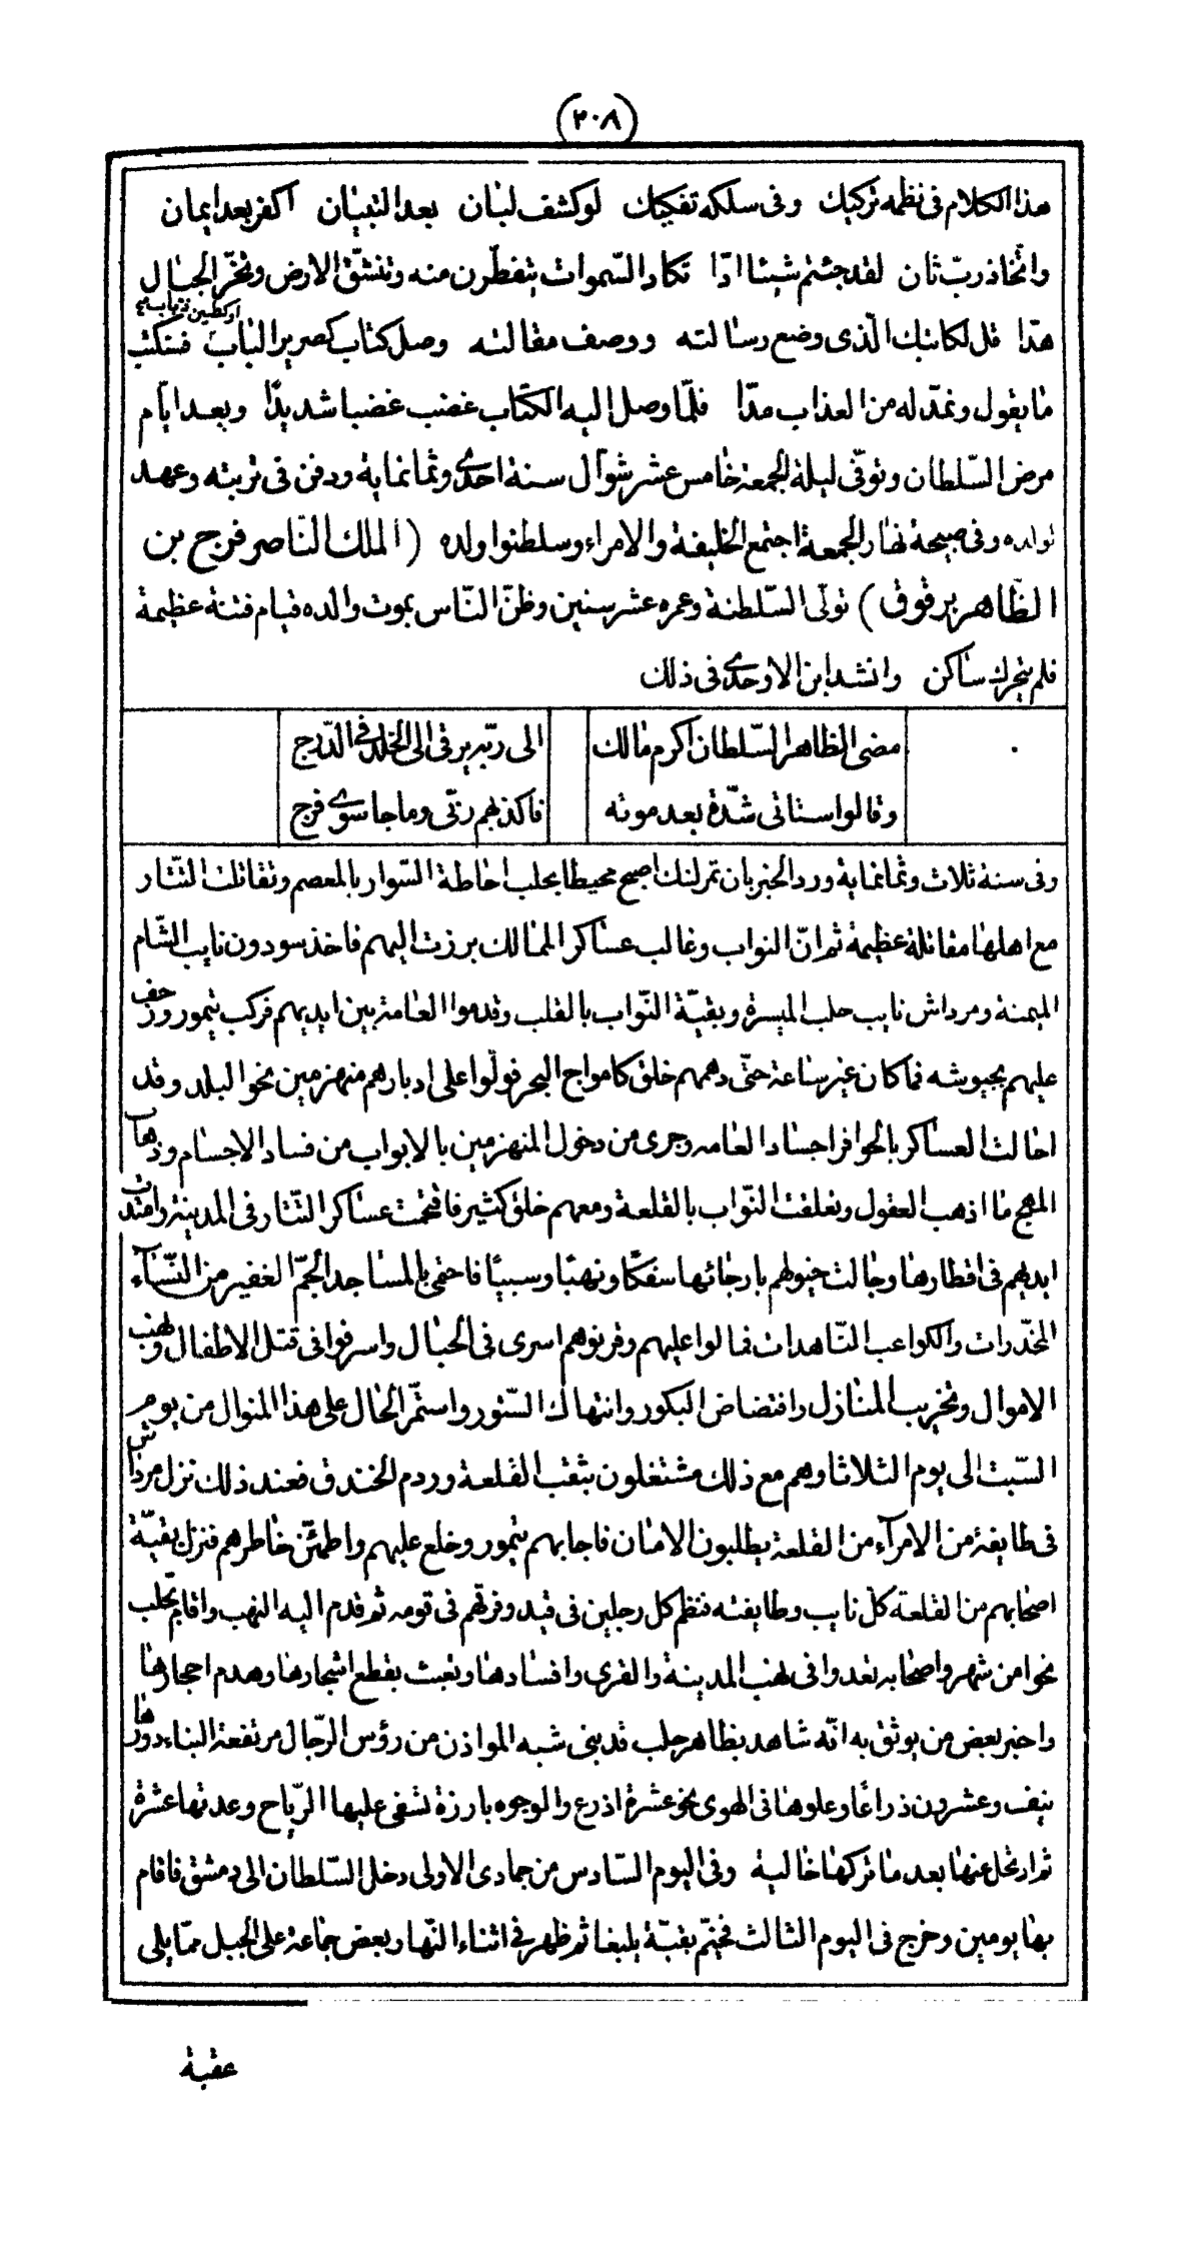 (٢٠٨)
هذا الكلام فى نظمه تركيك وفى سلكه تفكيك لو كشف لبان بعد التبيان اكفر بعد ايمان
واتّخاذ ربّ ثان لقد جئتم شيئا ادّا تكاد السّموات يتفطّرن منه وتنشقّ الارض وتخرّ الجبال
او كطنين ذباب
هدّا قل لكاتبك الّذى وضع رسالته ووصف مقالته وصل كتاب كصرير الباب فسنكتب
ما يقول ونمدّ له من العذاب مدّا فلمّا وصل اليه الكتاب غضب غضبا شديدًا وبعد ايّام
مرض السّلطان وتوفّى ليلة الجمعة خامس عشر شوّال سنة احدى وثمانماية ودفن فى تربته وعهد
لولده وفى صبيحة نهار الجمعة اجتمع الخليفة والامراء وسلطنوا ولده (الملك النّاصر فرج بن
الظّاهر برقوق) تولّى السّلطنة وعمره عشر سنين وظنّ النّاس بموت والده قيام فتنة عظيمة
فلم يتحرك ساكن وانشد ابن الاوحدى فى ذلك
مضى الظاهر السّلطان اكرم مالك الى ربّه يرقى الى الخلد فى الدّرج
وقالوا ستاتى شدّة بعد موته فاكذبهم ربّى وما جا سوى فرج
وفى سنة ثلاث وثمانماية ورد الخبر بان تمرلنك اصبح محيطا بحلب احاطة السّوار بالمعصم وتقاتلت التتار
مع اهلها مقاتلة عظيمة ثم انّ النواب وغالب عساكر الممالك برزت اليهم فاخذ سودون نايب الشّام
الميمنة ومرداش نايب حلب الميسرة وبقيّة النّواب بالقلب وقدموا العامة بين ايديهم فركب تيمور وزحف
عليهم بجيوشه فما كان غير ساعة حتّى دهمهم خلق كامواج البحر فولّوا على ادبارهم منهزمين نحو البلد وقد
احالت العساكر بالحوافر اجساد العامه وجرى من دخول المنهزمين بالابواب من فساد الاجسام وذهاب
المهج ما اذهب العقول وتعلقت النّواب بالقلعة ومعهم خلق كثير فاقتحمت عساكر التّتار فى المدينة وامتدّت
ايديهم فى اقطارها وجالت خيولهم بارجائها سفكًا ونهبًا وسبيًا فاحتمى بالمساجد الجمّ الغفير من النّسآء
المخدّرات والكواعب النّاهدات فمالوا عليهم وقرنوهم اسرى فى الحبال واسرفوا فى قتل الاطفال ونهب
الاموال وتخريب المنازل وافتضاض البكور وانتهاك السّتور واستمّر الحال على هذا المنوال من يوم
السّبت الى يوم الثلاثا وهم مع ذلك مشتغلون بنقب القلعة وردم الخندق فعند ذلك نزل مرداش
فى طايفة من الامرآء من القلعة يطلبون الامان فاجابهم تيمور وخلع عليهم واطمئن خاطرهم فنزل بقيّة
اصحابهم من القلعة كلّ نايب وطايفته فنظم كل رجلين فى قيد وفرّقهم فى قومه ثم قدم اليه النهب واقام بحلب
نحوا من شهر واصحابه تغدوا فى نهب المدينة والقرى وافسادها وتعبث بقطع اشجارها وهدم احجارها
واخبر بعض من يوثق به انّه شاهد بظاهر حلب قد بنى شبه المواذن من رؤس الرّجال مرتفعة البناء دورها
نيف وعشرون ذراعًا وعلوها فى الهوى نحو عشرة اذرع والوجوه بارزة تسفى عليها الرّياح وعدتها عشرة
ثم ارتحل عنها بعد ما تركها خالية وفى اليوم السّادس من جمادى الاولى دخل السّلطان الى دمشق فاقام
بها يومين وخرج فى اليوم الثالث فخيّم بقبّة يلبغا ثم ظهر فى اثناء النّهار بعض جماعة على الجبل ممّا يلى
عقبة